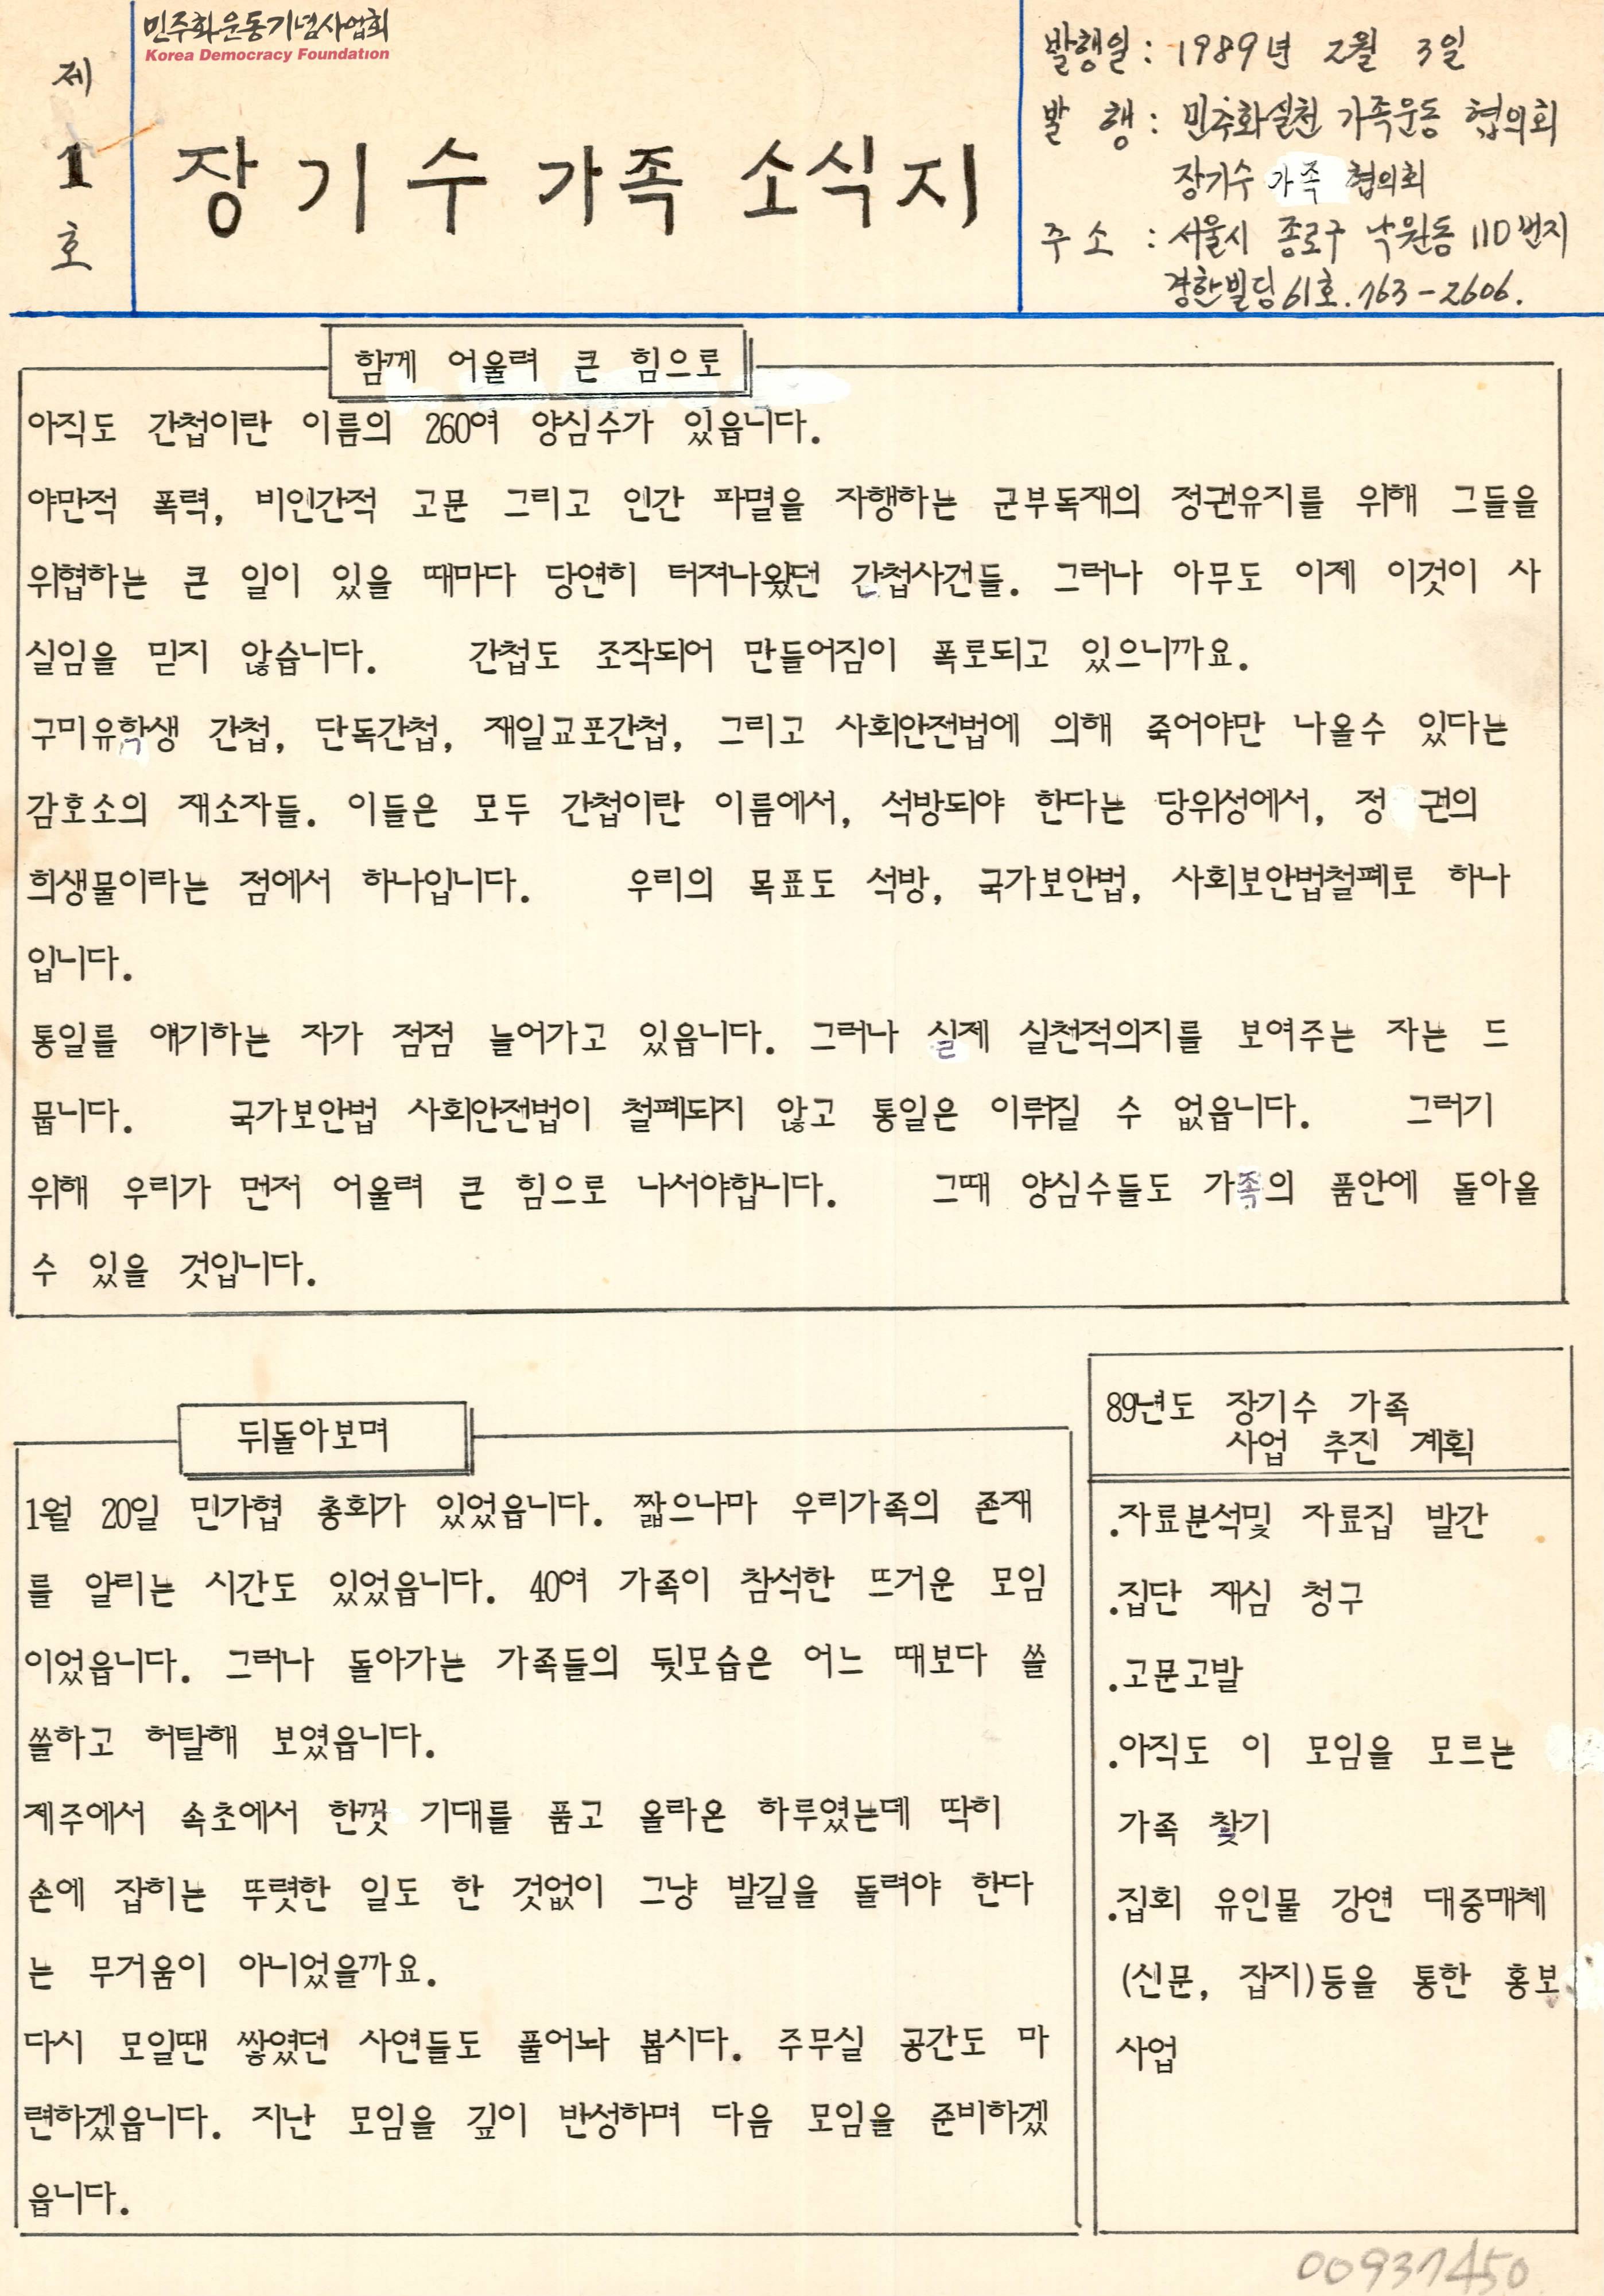 민주화운동기념사업회
Korea Democracy Foundation
제
1
호
장기수 가족 소식지
발행일 : 1989년 2월 3일
발 행 : 민주화실천 가족운동 협의회
장기수 가족 협의회
주 소 : 서울시 종로구 낙원동 110번지
경한빌딩 61호. 763-2606.
함께 어울려 큰 힘으로
아직도 간첩이란 이름의 260여 양심수가 있읍니다.
야만적 폭력, 비인간적 고문 그리고 인간 파멸을 자행하는 군부독재의 정권유지를 위해 그들을
위협하는 큰 일이 있을 때마다 당연히 터져나왔던 간첩사건들. 그러나 아무도 이제 이것이 사
실임을 믿지 않습니다. 간첩도 조작되어 만들어짐이 폭로되고 있으니까요.
구미유학생 간첩, 단독간첩, 재일교포간첩, 그리고 사회안전법에 의해 죽어야만 나올수 있다는
감호소의 재소자들. 이들은 모두 간첩이란 이름에서, 석방되야 한다는 당위성에서, 정 권의
희생물이라는 점에서 하나입니다. 우리의 목표도 석방, 국가보안법, 사회보안법철폐로 하나
입니다.
통일를 얘기하는 자가 점점 늘어가고 있읍니다. 그러나 실제 실천적의지를 보여주는 자는 드
뭅니다. 국가보안법 사회안전법이 철폐되지 않고 통일은 이뤄질 수 없읍니다. 그러기
위해 우리가 먼저 어울려 큰 힘으로 나서야합니다. 그때 양심수들도 가족의 품안에 돌아올
수 있을 것입니다.
뒤돌아보며
1월 20일 민가협 총회가 있었읍니다. 짧으나마 우리가족의 존재
를 알리는 시간도 있었읍니다. 40여 가족이 참석한 뜨거운 모임
이었읍니다. 그러나 돌아가는 가족들의 뒷모습은 어느 때보다 쓸
쓸하고 허탈해 보였읍니다.
제주에서 속초에서 한껏 기대를 품고 올라온 하루였는데 딱히
손에 잡히는 뚜렷한 일도 한 것없이 그냥 발길을 돌려야 한다
는 무거움이 아니었을까요.
다시 모일땐 쌓였던 사연들도 풀어놔 봅시다. 주무실 공간도 마
련하겠읍니다. 지난 모임을 깊이 반성하며 다음 모임을 준비하겠
읍니다.
89년도 장기수 가족
사업 추진 계획
.자료분석및 자료집 발간
.집단 재심 청구
.고문고발
.아직도 이 모임을 모르는
가족 찾기
.집회 유인물 강연 대중매체
(신문, 잡지)등을 통한 홍보
사업
00937450